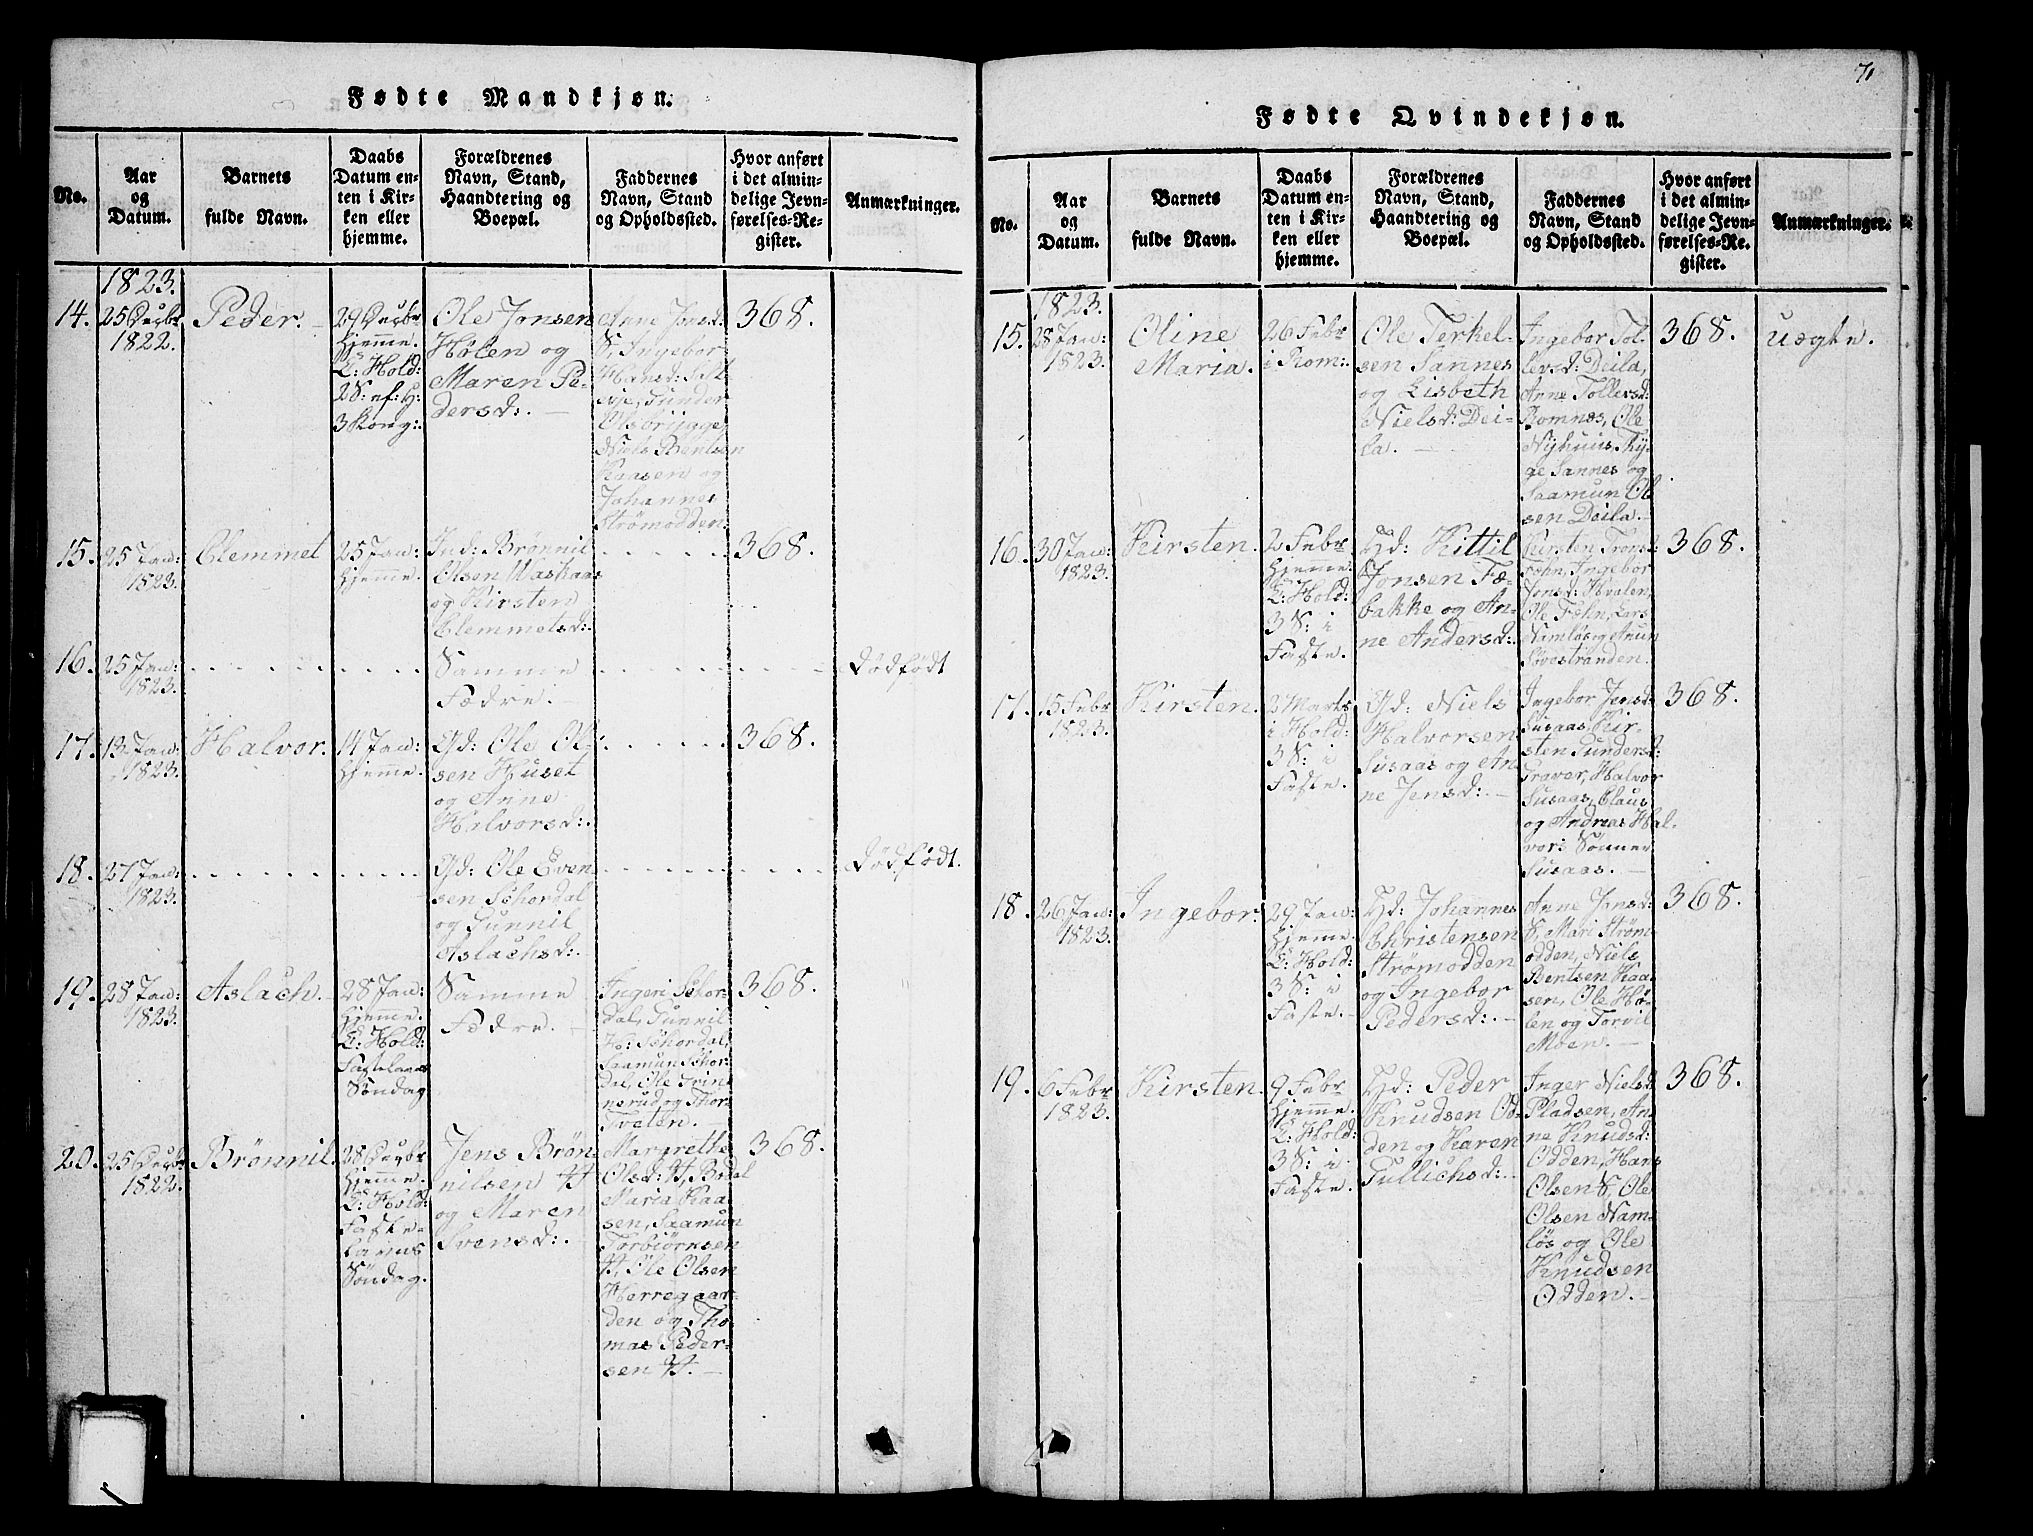 Fødte Mandkjøn.
No.
Aar
og
Datum.
Barnets
fulde Navn.
Daabs
Datum en-
ten i Kir-
ken eller
hjemme.
Forældrenes
Navn, Stand,
Haandtering og
Boepæl.
Faddernes
Navn, Stand
og Opholdssted.
Hvor anført
i det almin-
delige Jevn-
førelses-Re-
gister.
Anmærkninger.
1823.
14.
25 Decbr
1822.
Peder.
29 Decbr
hjemme.
E: Hold:
2 S: ef: H:
3 Kong:
Ole Jonsen
Holen og
Maren Pe-
dersd:. —
Anne Jonsd:
S, Ingebor
Hansd:
Gunder
Olsbrygge
Niels Bentsen
Kaasen og
Johannes
Strømodden.
368.
15.
25 Jan:
1823.
Clemmet
25 Jan:
hjemme.
Ind: Brønnil
Olsen Waskaas
og Kirsten
Clemmetsd:.
368.
16.
25 Jan:
1823.
Samme
Fædre. —
dødfødt
17.
13 Jan:
1823.
Halvor.
14 Jan:
hjemme.
Gd: Ole Ol-
sen Huset
og Anne
Halvorsd:.
368.
18.
27 Jan:
1823.
Gd: Ole Even
sen Schordal
og Gunnil
Aslachsd:.
dødfødt.
19.
28 Jan:
1823.
Aslach.
28 Jan:
hjemme.
E: Hold:
Fastelavns
Søndag
Samme
Fædre. —
Ingeri Schor-
dal, Gunnil
Schordal,
Saamun Schor-
dal, Ole Grin-
nerud og Thor
Tveten. —
368.
20.
25 Decbr
1822.
Brønnil.
28 Decbr
hjemme.
E: Hold:
Faste-
lavns
Søndag.
Jens Brøn
nilsen H
og Maren
Svensd:. —
Margrethe
Olsd: H, Bodal
Maria Kaa-
sen, Saamun
Torbiörnsen
H, Ole Olsen
Herregaar-
den og Tho
mas Peder-
sen H. —
368.
71
Fødte Qvindekjøn.
No.
Aar
og
Datum.
Barnets
fulde Navn.
Daabs
Datum en-
ten i Kir-
ken eller
hjemme.
Forældrenes
Navn, Stand,
Haandtering og
Boepæl.
Faddernes
Navn, Stand
og Opholdssted.
Hvor anført
i det almin-
delige Jevn-
førelses-Re-
gister.
Anmærkninger.
1823.
15.
28 Jan:
1823.
Oline
Maria.
26 Febr
i Rom:.
Ole Terkel-
sen Sannes
og Lisbeth
Nielsd: Dei-
la. —
Ingebor Tol-
levsd: Deila,
Anne Tollevsd:
Romnes, Ole
Nyhuus, Thy-
ge Sannes og
Saamun Ol
sen Deila. —
368.
uægte.
16.
30 Jan:
1823.
Kirsten.
2 Febr
hjemme
E: Hold:
3 S: i
Faste.
Hd: Kittil
Jonsen Fæ-
bakke og An-
ne Andersd:.
Kirsten Tronsd:
Fehn, Ingebor
Jonsd: Hvalen,
Ole Fehn, Lars
Namløs og Anun
Søvestranden.
368.
17.
15 Febr
1823.
Kirsten.
2 Marts
i Hold:
3 S: i
Faste.
Gd: Niels
Halvorsen
Susaas og An-
ne Jensd:. —
Ingebor Jensd:
Susaas, Kir-
sten Gundersd:
Graver, Halvor
Susaas, Claus
og Andreas Hal-
vors Sønner
Susaas. —
368.
18.
26 Jan:
1823.
Ingebor.
29 Jan:
hjemme.
E: Hold:
3 S: i
Faste. —
Hd: Johannes
Christensen
Strømodden
og Ingebor
Pedersd:. —
Anne Jonsd:
S, Mari Strøm-
odden, Niels
Bentsen Kaa-
sen, Ole Ho-
len og Torvil
Moen. —
368.
19.
6 Febr
1823.
Kirsten.
9 Febr
hjemme.
E: Hold:
3 S: i
Faste.
Hd: Peder
Knudsen Od-
den og Karen
Gullichsd:.
Inger Nielsd:
Pladsen, An-
ne Knudsd:
Odden, Hans
Olsen S, Ole
Olsen Nam-
løs og Ole
Knudsen
Odden. —
368.